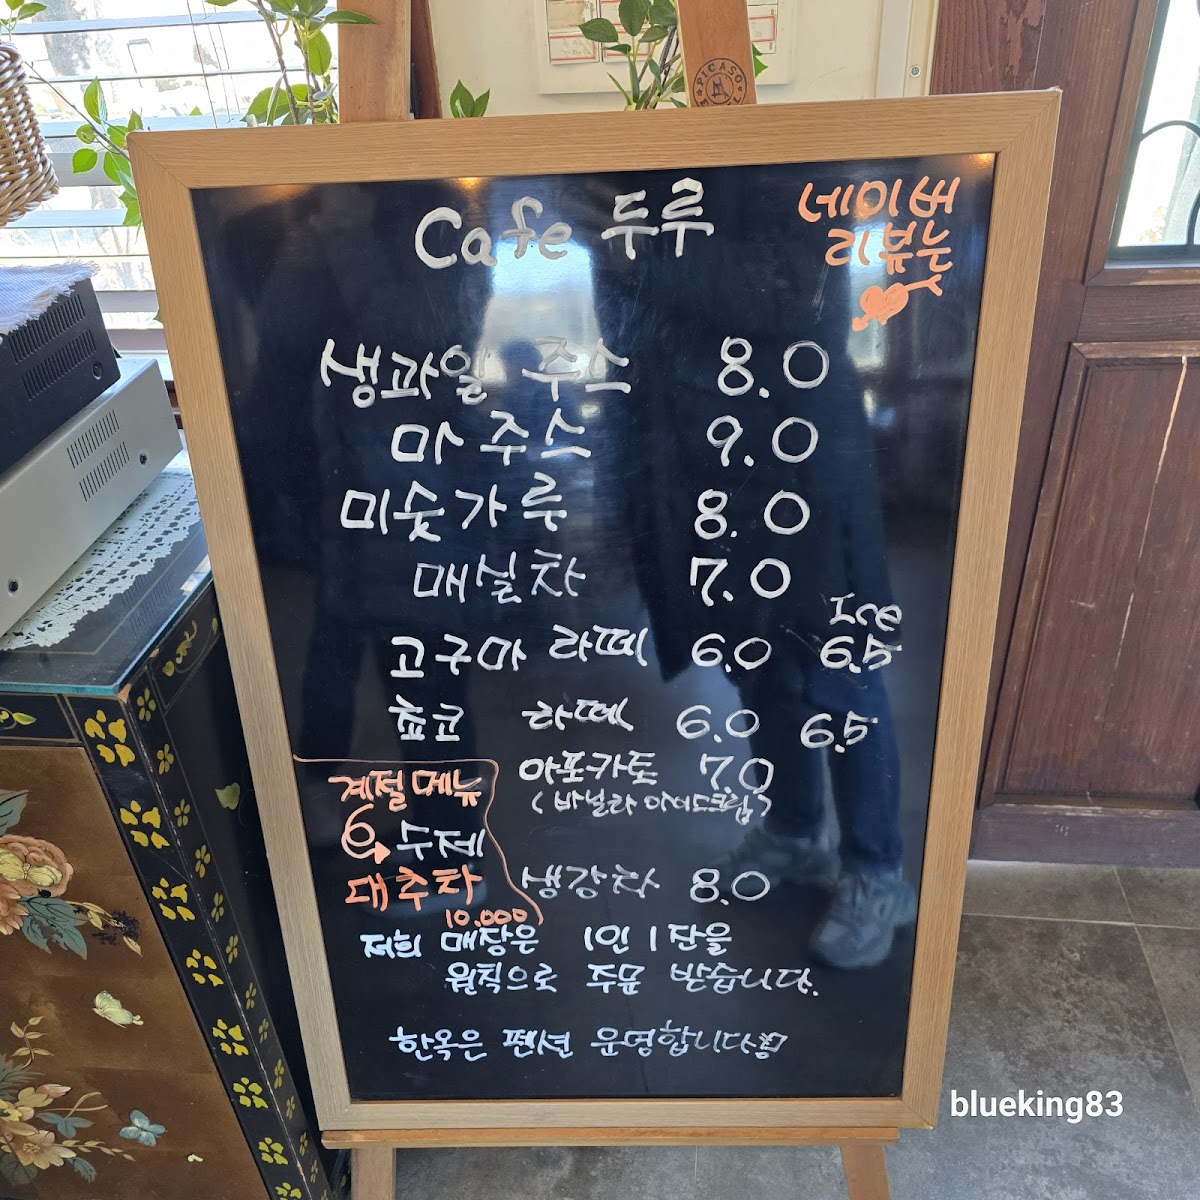 PICASO
Cafe 두루
네이버
리뷰는
생과일 주스 8.0
마 주스 9.0
미숫가루 8.0
매실차 7.0
Ice
고구마 라떼 6.0 6.5
쵸코 라떼 6.0 6.5
아포카토 7.0
(바닐라 아이스크림)
계절메뉴
수제
대추차
10.000
생강차 8.0
저희 매장은 1인 1잔을
원칙으로 주문 받습니다.
한옥은 펜션 운영합니다
blueking83